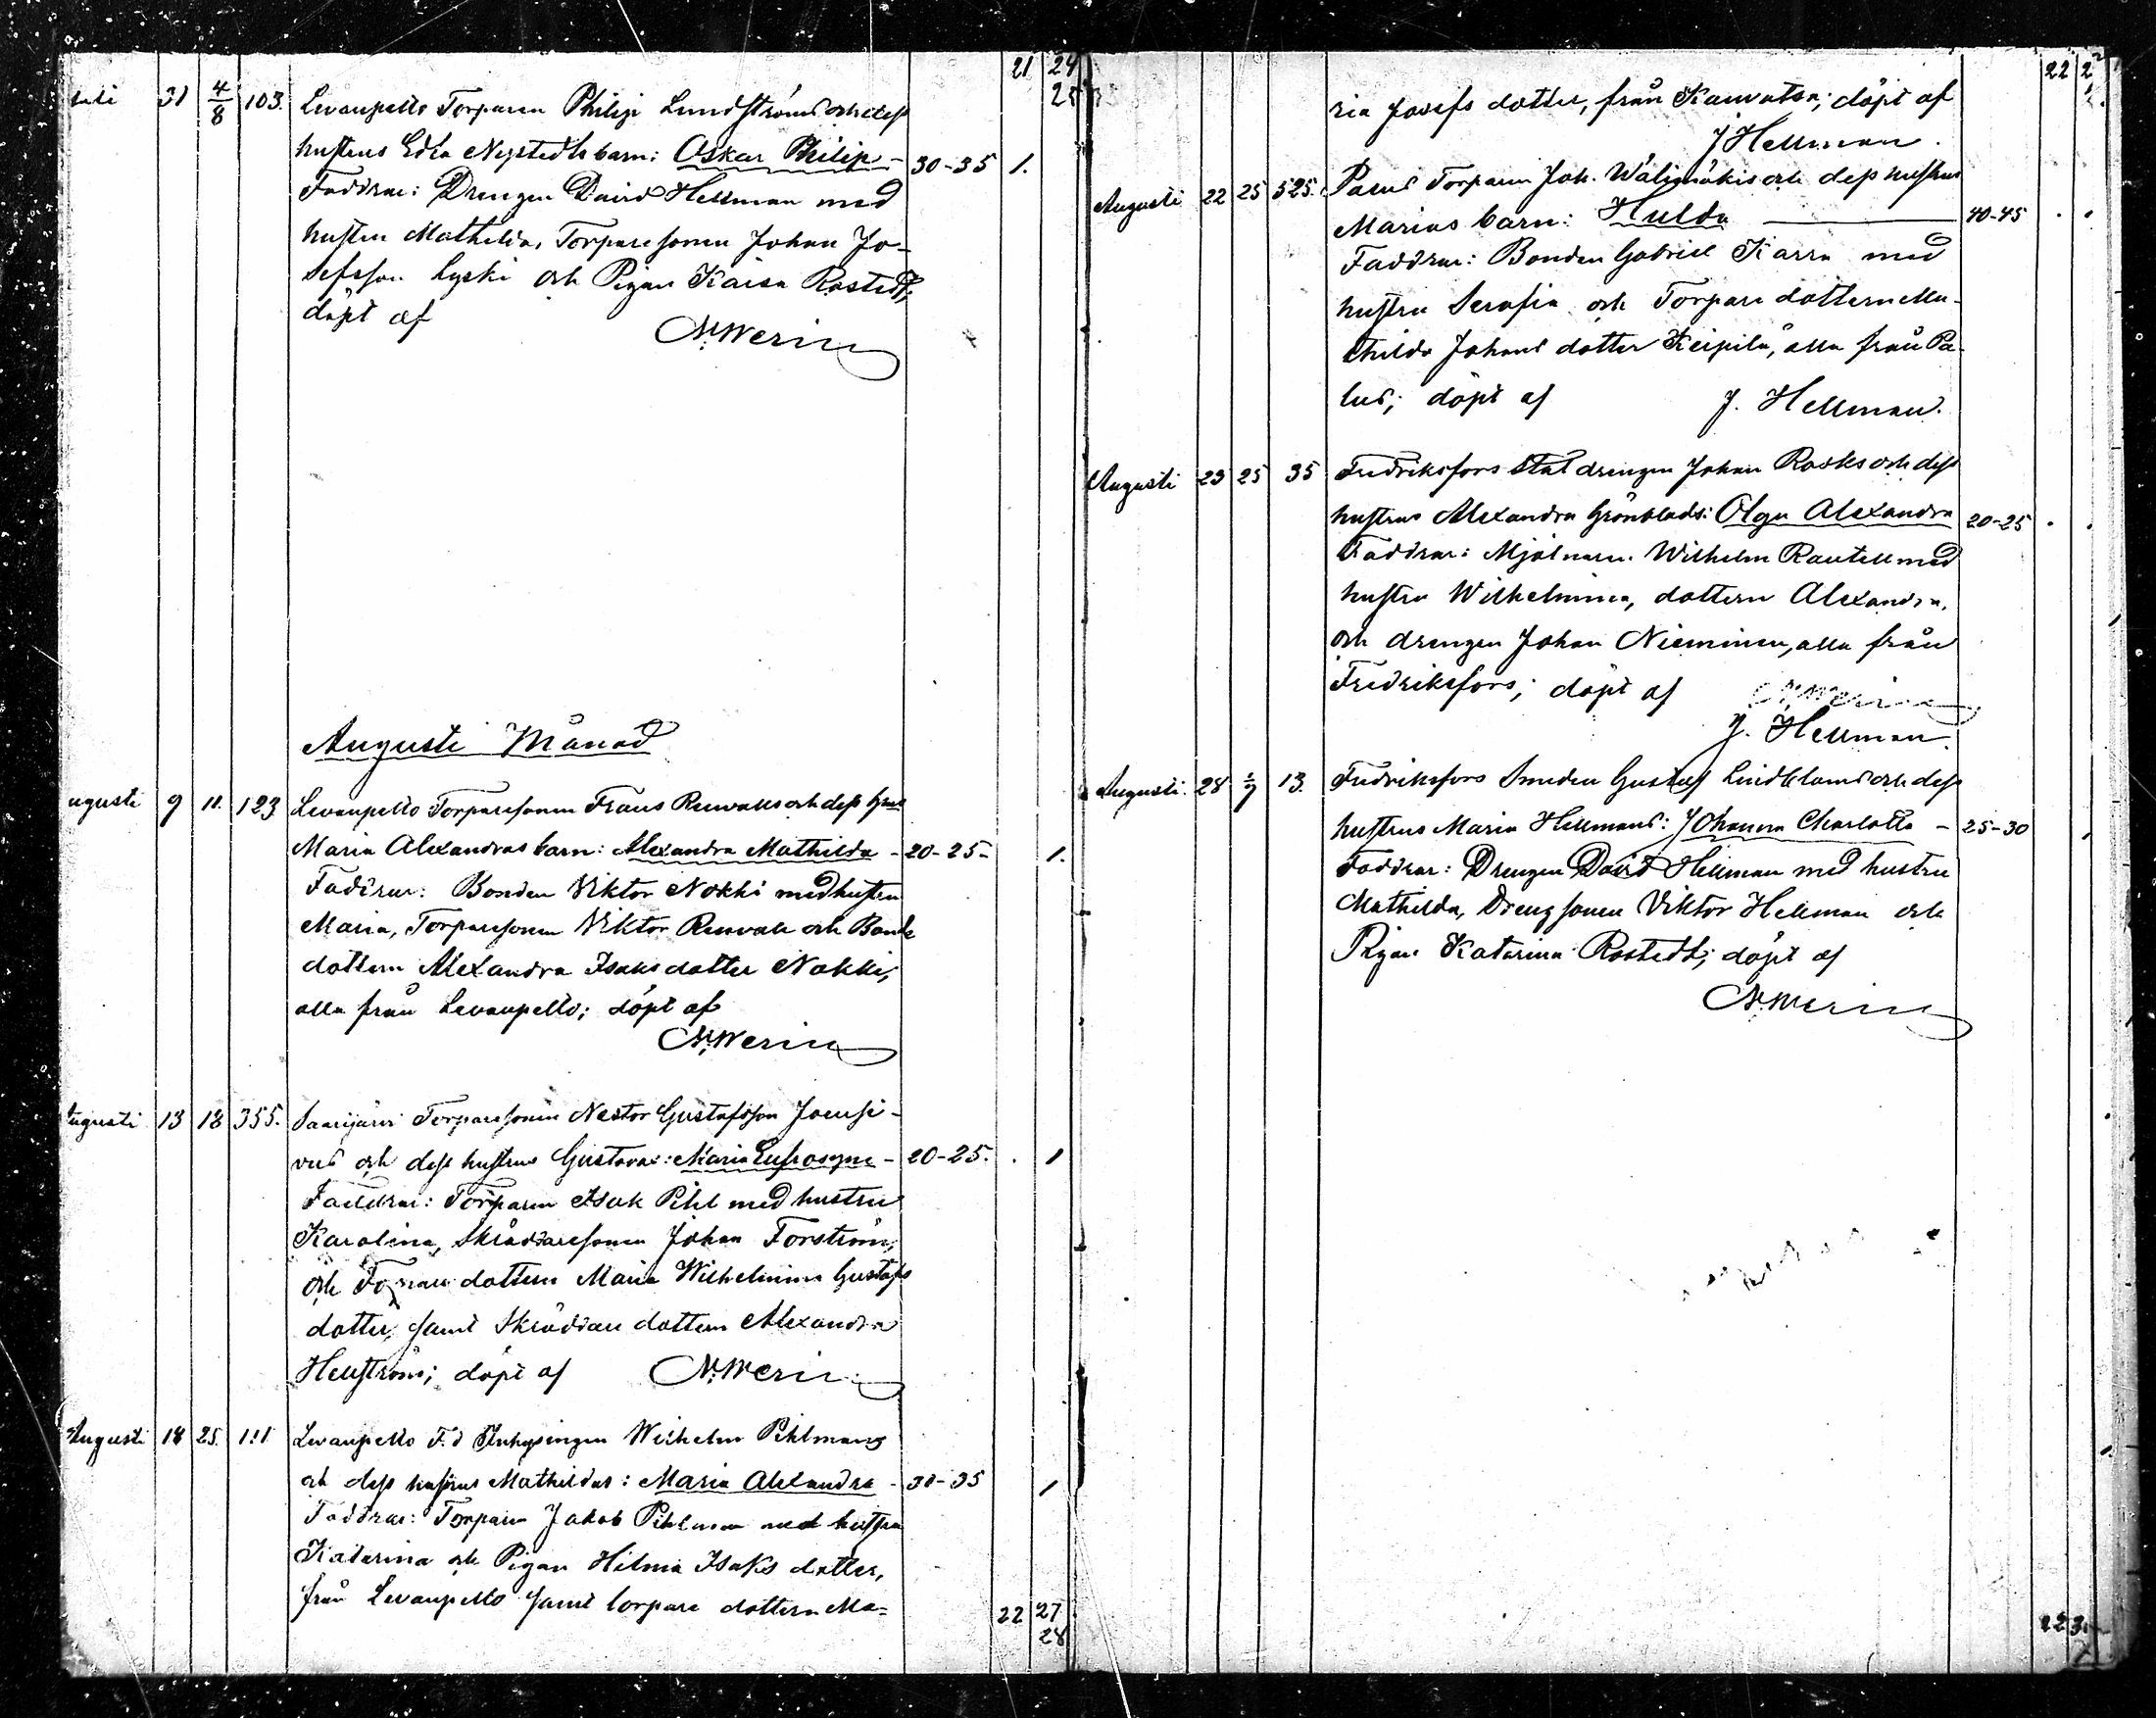 21 24
25
Juli 31 4/8 103. Levanpelto Torparen Philip Lundströms och dess
hustrus Edla Nystedts barn: Oskar Philip - 30-35 1.
Faddrar: Drengen David Hellman med
hustru Mathilda, Torparesonen Johan Jo-
sefsson Lyski och Pigan Kaisa Rostedt;
döpt af N. Werin
Augusti Månad
ugusti 9 11. 123 Levanpelto Torparesonen Frans Renvalls och dess hust
Maria Alexandras barn: Alexandra Mathilda - 20-25- 1.
Faddrar: Bonden Viktor Nokki med hustru
Maria, Torparesonen Viktor Renvall och Bonde
dottern Alexandra Isaksdotter Nokki,
alla från Levanpelto; döpt af
N. Werin
ugusti 13 18 355. Saarijärvi Torparesonen Nestor Gustafsson
och dess hustrus Gustavas: Maria Eufrosyne - 20-25. . 1
Faddrar: Torparen Isak Pihl med hustru
Karolina, Skräddaresonen Johan Forström,
och Torpare dottern Maria Wilhelmina Gustafs
dotter, samt Skräddare dottern Alexandra
Hellström; döpt af N. Werin
Augusti 18 25. 111 Levanpelto F.d Inhysingen Wilhelm Pihlmans
och dess hustrus Mathildas: Maria Alexandra - 30-35 1
Faddrar: Torparen Jakob Pihlman med hustru
Katarina och Pigan Hilma Isaks dotter,
från Levanpelto samt torpare dottern Ma-
22 27
28
22 2
ria Josefs dotter, från Kauvatsa; döpt af
J Hellman.
Augusti 22 25 525. Palus Torparen Joh. Välimäkis och dess hustrus
Marias barn: Hulda 40-45 . .
Faddrar: Bonden Gabriel Karra med
hustru Serafia och Torpare dottern Ma-
thilda Johans dotter Keipilä, alla från Pa-
lus; döpt af J. Hellman.
Augusti 23 25 35 Fredriksfors Stal drengen Johan Rosks och dess
hustrus Alexandra Grönblads: Olga Alexandra 20-25 . .
Faddrar: Mjölnaren Wilhelm Rautell med
hustru Wilhelmina, dottern Alexandra,
och drengen Johan Nieminen, alla från
Fredriksfors; döpt af N. Werin
J. Hellman.
Augusti. 28 1/9 13. Fredriksfors Smeden Gustaf Lindbloms och dess
hustrus Maria Hellmans: Johanna Charlotta - 25-30
Faddrar: Drengen David Hellman med hustru
Mathilda, Drengsonen Viktor Hellman och
Pigan Katarina Rostedt; döpt af
N. Werin
22 3